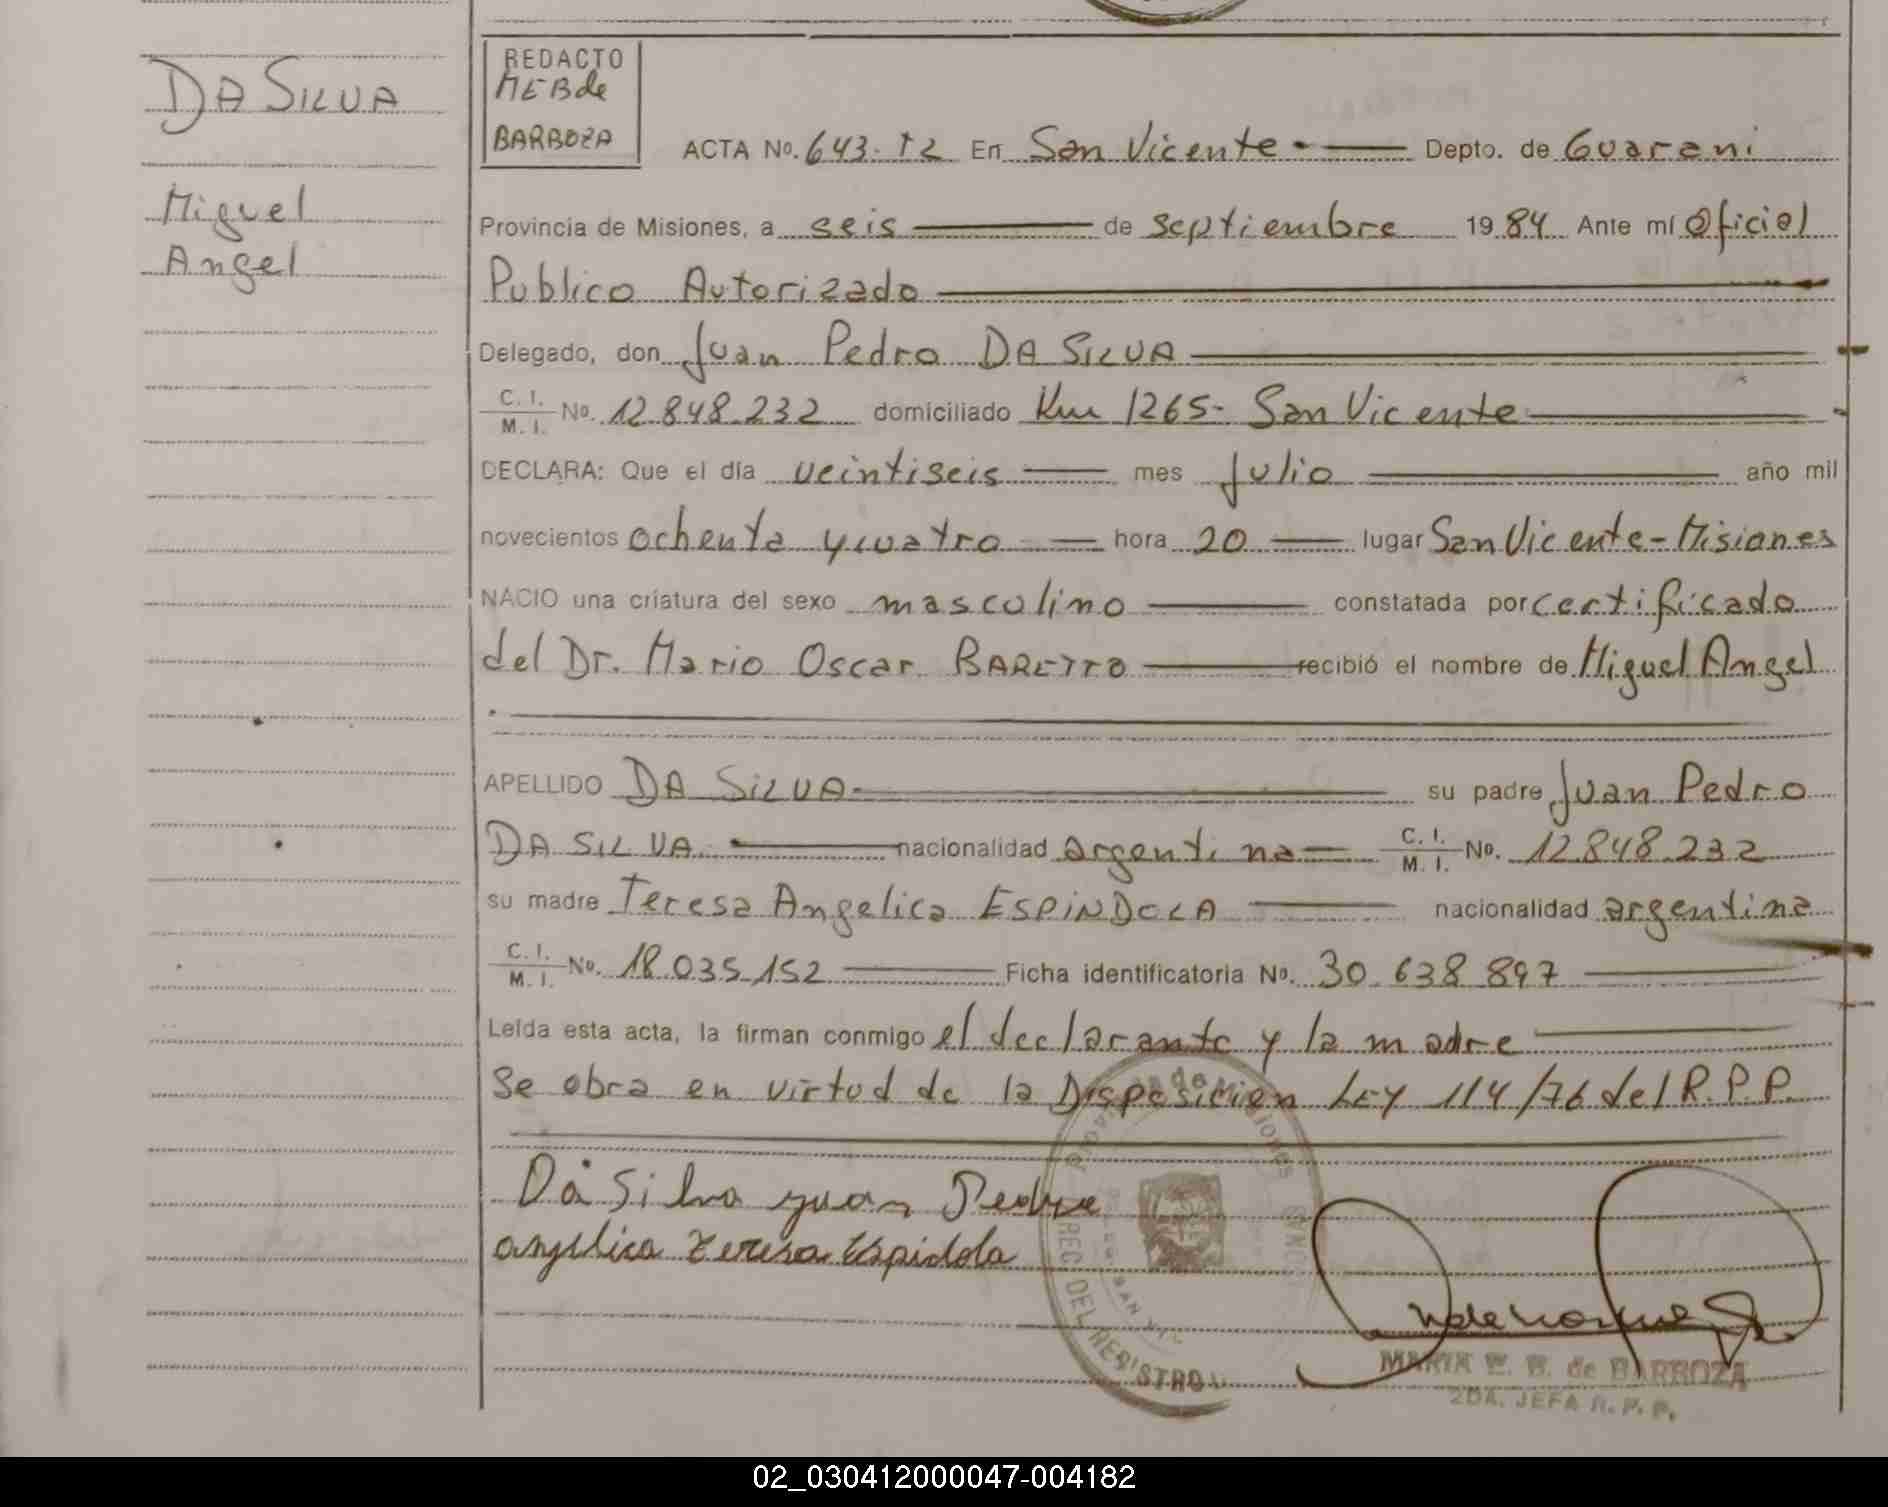 DA SILVA
Miguel
Angel
REDACTO
MEBde
BARBOZA
ACTA No. 643. T2 En San Vicente Depto. de Guarani
Provincia de Misiones, a seis de septiembre 1984 Ante mí Oficial
Publico Autorizado
Delegado, don Juan Pedro DA SILVA
C. I. / M. I. No. 12.848.232 domiciliado Km 1265- San Vicente
DECLARA: Que el día veintiseis mes Julio año mil
novecientos ochenta y cuatro hora 20 lugar San Vicente - Misiones
NACIO una criatura del sexo masculino constatada por certificado
del Dr. Mario Oscar BARETTO recibió el nombre de Miguel Angel
APELLIDO DA SILVA su padre Juan Pedro
DA SILVA nacionalidad argentina C. I. / M. I. No. 12.848.232
su madre Teresa Angelica ESPINDOLA nacionalidad argentina
C. I. / M. I. No. 18.035.152 Ficha identificatoria No. 30.638.897
Leída esta acta, la firman conmigo el declarante y la madre
Se obra en virtud de la Disposicion LEY 114/76 del R.P.P.
Da Silva Juan Pedro
angelica teresa Espidola
REG DEL REGISTRO
MARIA E. B. de BARROZA
2DA. JEFA R. P. P.
02_030412000047-004182